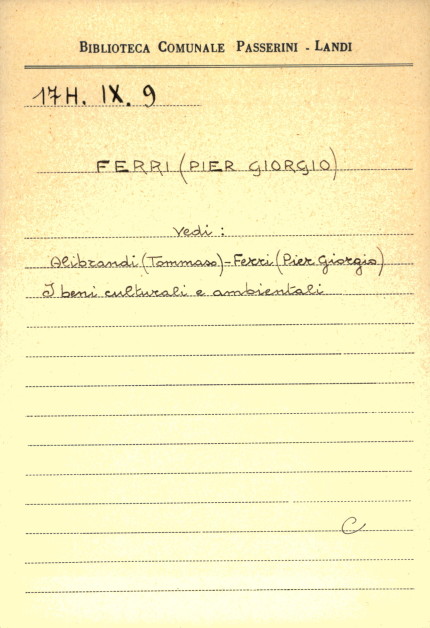 BIBLIOTECA COMUNALE PASSERINI - LANDI
17H. IX. 9
FERRI (PIER GIORGIO)
Vedi :
Alibrandi (Tommaso) - Ferri (Pier Giorgio)
I beni culturali e ambientali
C